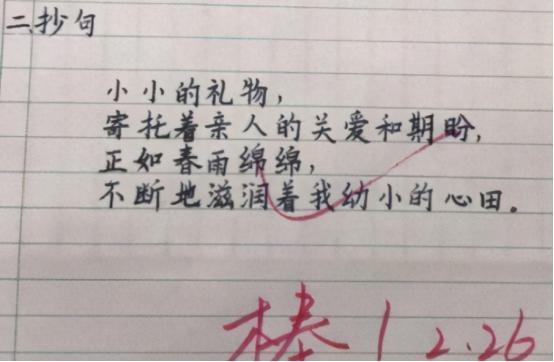 二、抄句
小小的礼物，
寄托着亲人的关爱和期盼，
正如春雨绵绵，
不断地滋润着我幼小的心田。
棒！2.26